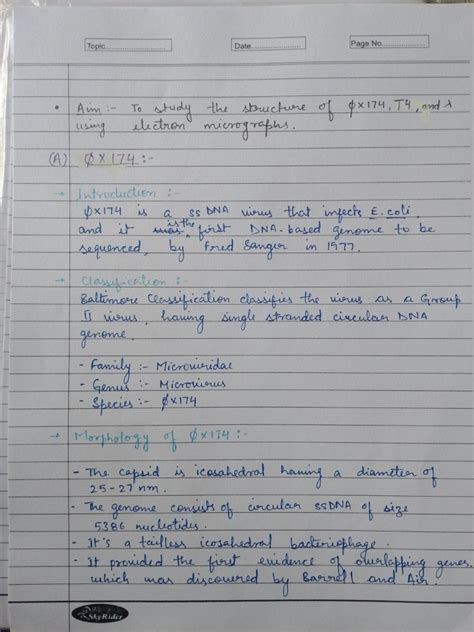 Topic....................
Date....................
Page No.................
• Aim :- To study the structure of ϕx174, T4, and λ
using electron micrographs.
(A) ϕX174 :-
→ Introduction :-
ϕx174 is a ss DNA virus that infects E. coli,
and it was is the first DNA-based genome to be
sequenced, by Fred Sanger in 1977.
→ Classification :-
Baltimore Classification classifies the virus as a Group
II virus, having single stranded circular DNA
genome.
- Family :- Microviridae
- Genus :- Microvirus
- Species :- ϕX174
→ Morphology of ϕX174 :-
- The capsid is icosahedral having a diameter of
25-27 nm.
- The genome consists of circular ssDNA of size
5386 nucleotides.
- It's a tailless icosahedral bacteriophage.
- It provided the first evidence of overlapping genes,
which was discovered by Barrell and Air.
SkyRider